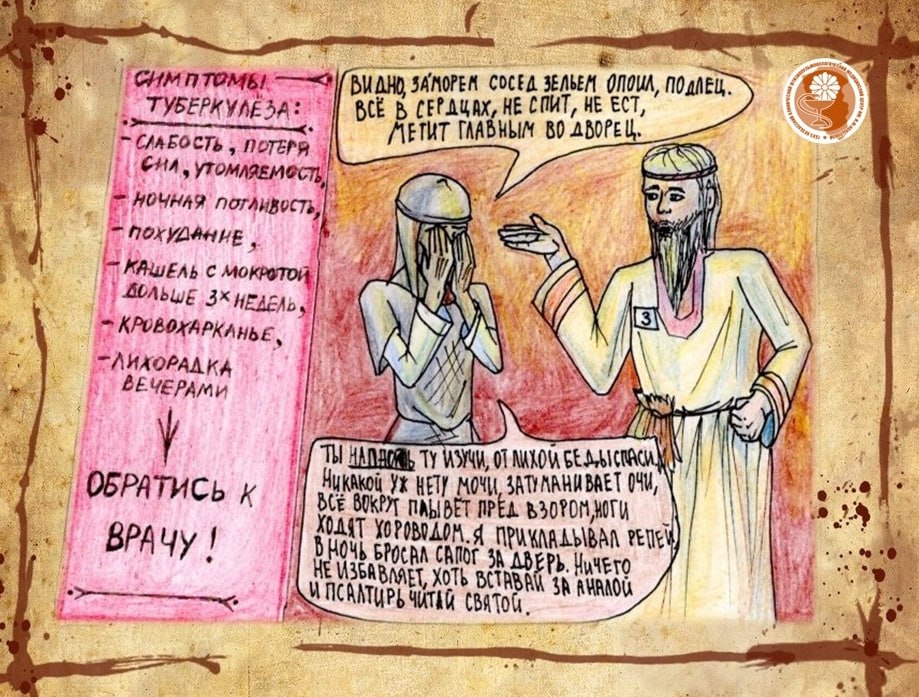 СИМПТОМЫ
ТУБЕРКУЛЁЗА:
- СЛАБОСТЬ, ПОТЕРЯ
СИЛ, УТОМЛЯЕМОСТЬ,
- НОЧНАЯ ПОТЛИВОСТЬ,
- ПОХУДАНИЕ,
- КАШЕЛЬ С МОКРОТОЙ
ДОЛЬШЕ 3Х НЕДЕЛЬ,
- КРОВОХАРКАНЬЕ,
- ЛИХОРАДКА
ВЕЧЕРАМИ
ОБРАТИСЬ К
ВРАЧУ!
ВИДНО, ЗА МОРЕМ СОСЕД ЗЕЛЬЕМ ОПОИЛ, ПОДЛЕЦ.
ВСЁ В СЕРДЦАХ, НЕ СПИТ, НЕ ЕСТ,
МЕТИТ ГЛАВНЫМ ВО ДВОРЕЦ.
3
ТЫ НАПАСТЬ ТУ ИЗУЧИ, ОТ ЛИХОЙ БЕДЫ СПАСИ.
НИКАКОЙ УЖ НЕТУ МОЧИ, ЗАТУМАНИВАЕТ ОЧИ,
ВСЁ ВОКРУГ ПЛЫВЁТ ПРЕД ВЗОРОМ, НОГИ
ХОДЯТ ХОРОВОДОМ. Я ПРИКЛАДЫВАЛ РЕПЕЙ,
В НОЧЬ БРОСАЛ САПОГ ЗА ДВЕРЬ. НИЧЕГО
НЕ ИЗБАВЛЯЕТ, ХОТЬ ВСТАВАЙ ЗА АНАЛОЙ
И ПСАЛТИРЬ ЧИТАЙ СВЯТОЙ.